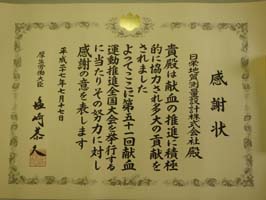 感謝状
日栄地質測量設計株式会社殿
貴殿は献血の推進に積極
的に協力され多大の貢献を
されました
よってここに第五十一回献血
運動推進全国大会を挙行する
に当たりその努力に対し
感謝の意を表します
平成二十七年七月十七日
厚生労働大臣
塩崎恭久